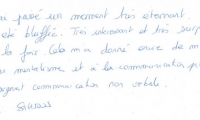 ai passé un moment très étonnant
été bluffée. Très intéressant et très surp
la fois. Cela m'a donné envie de m
au mentalisme et à la communication pa
communication non verbale.